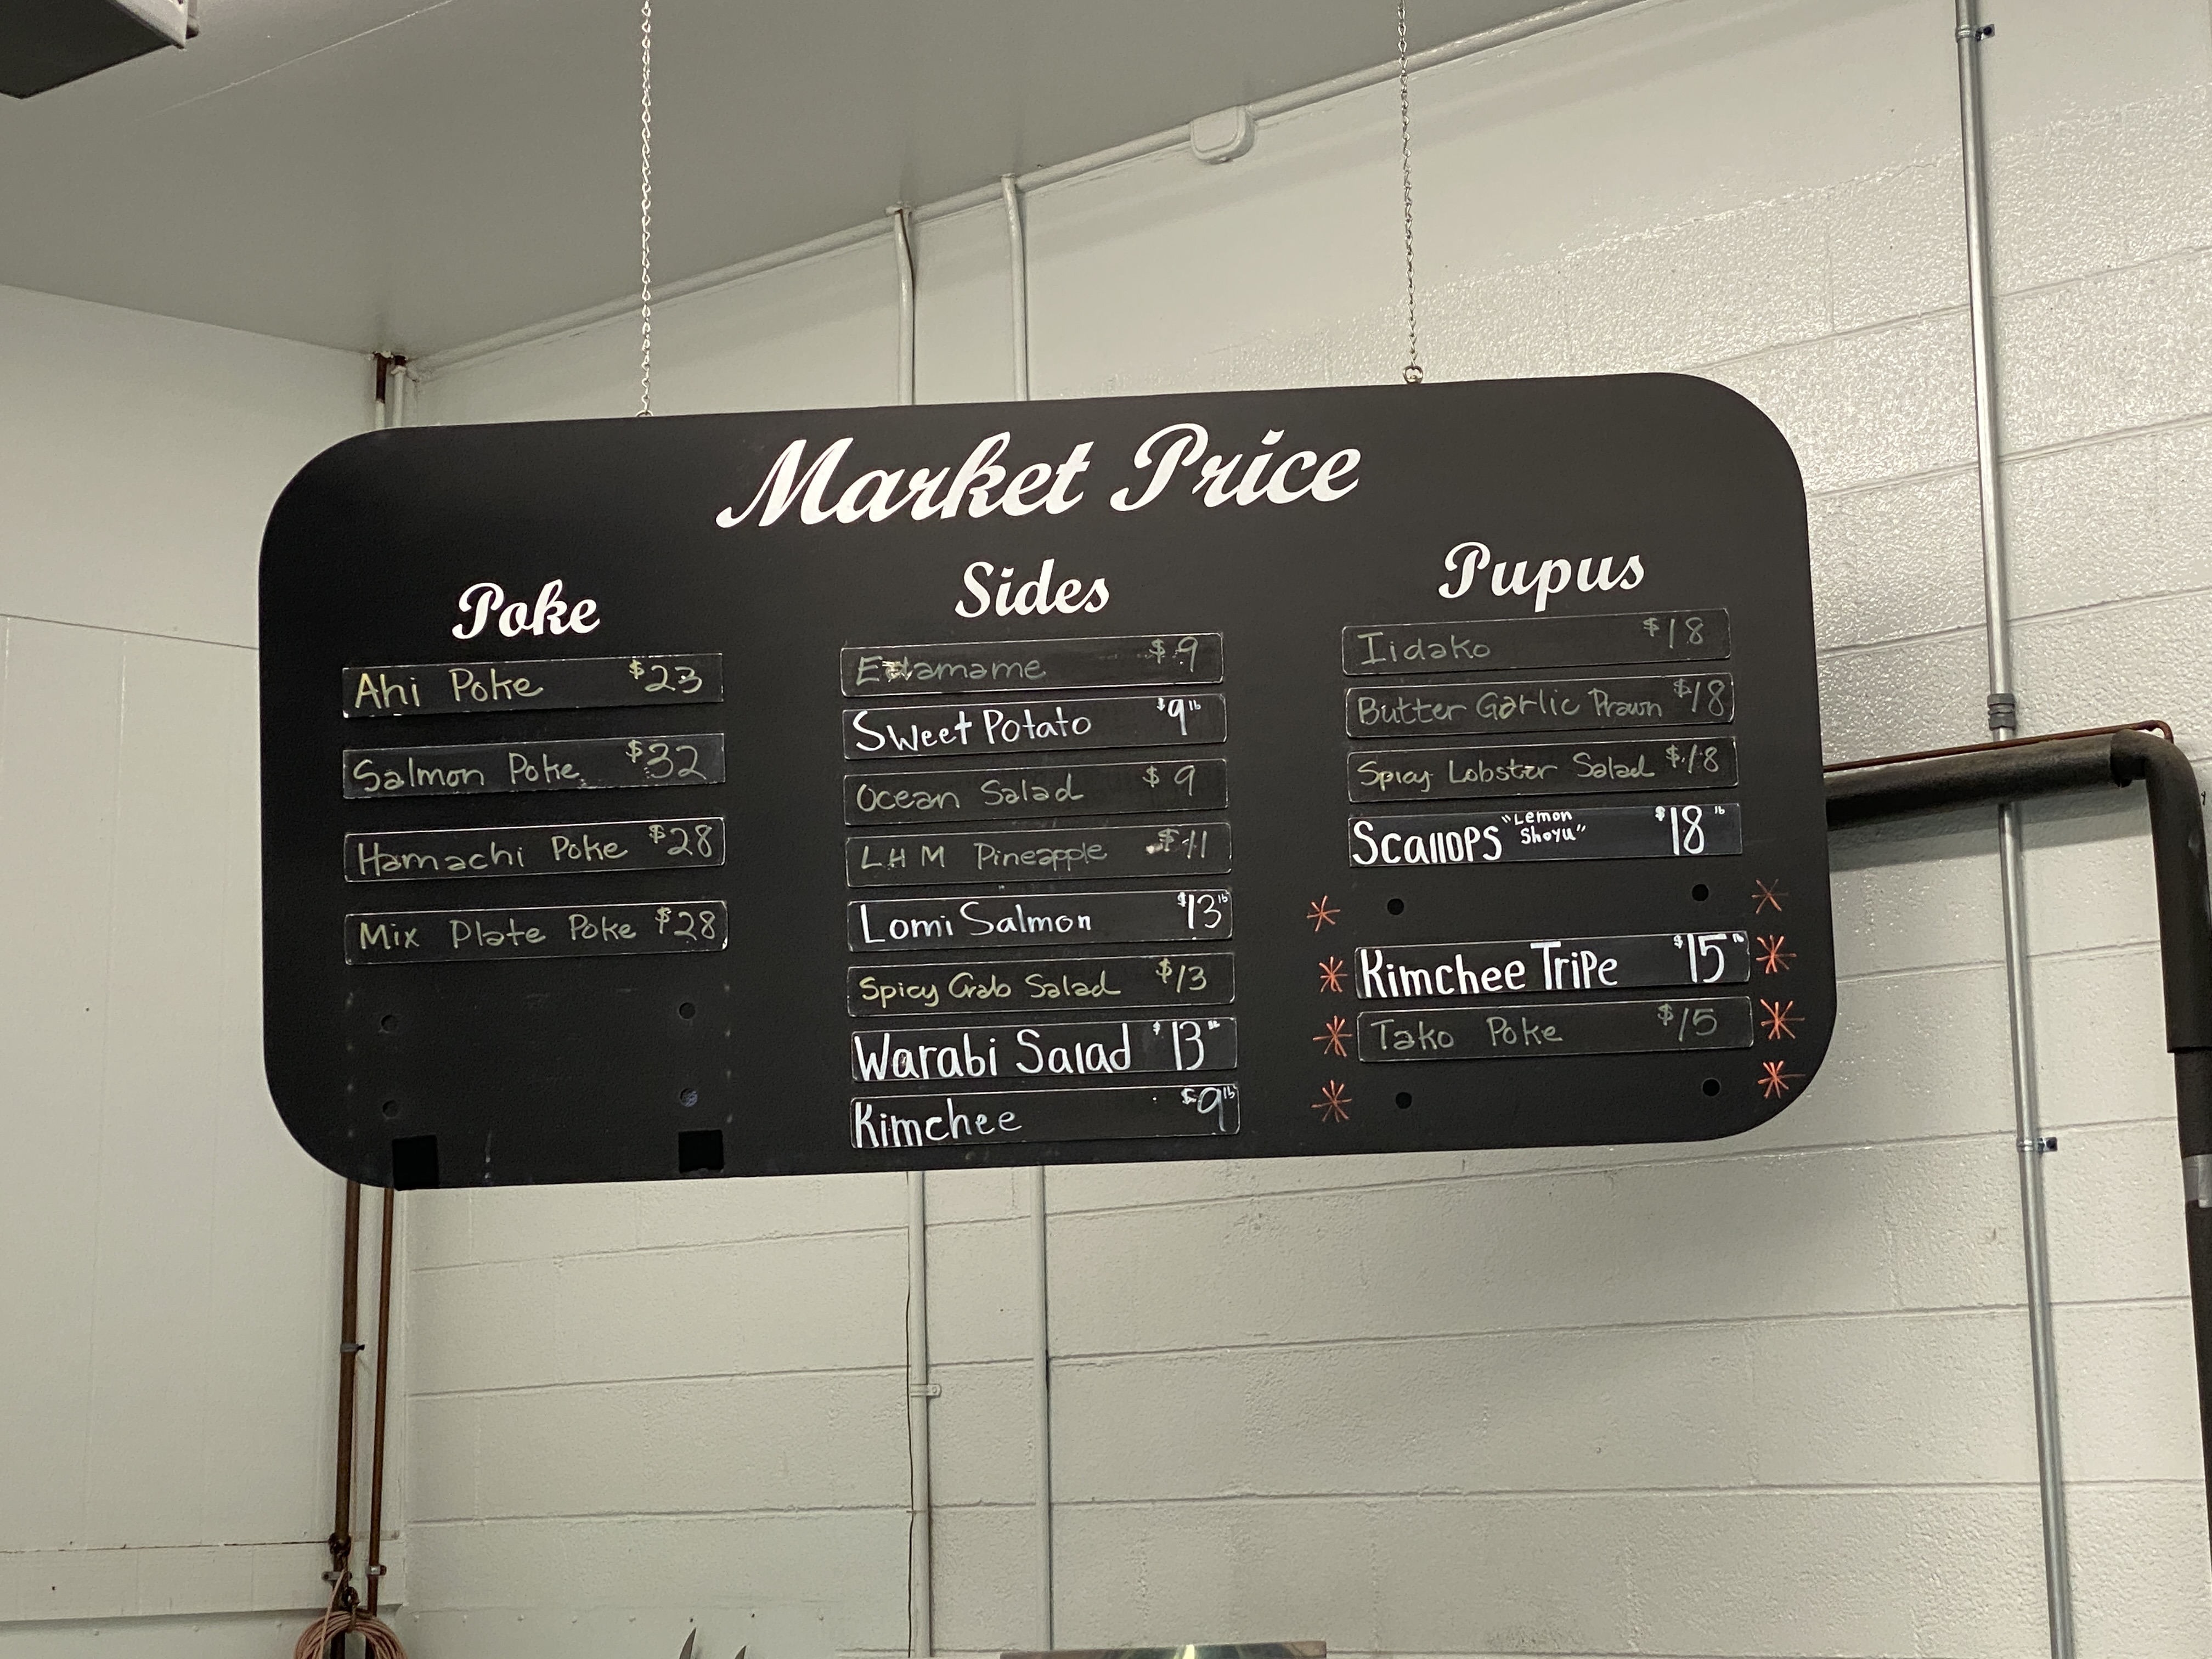 Market Price
Poke
Ahi Poke $23
Salmon Poke $32
Hamachi Poke $28
Mix Plate Poke $28
Sides
Edamame $9
Sweet Potato $9 lb
Ocean Salad $9
LHM Pineapple $11
Lomi Salmon $13 lb
Spicy Crab Salad $13
Warabi Salad $13 lb
Kimchee $9 lb
Pupus
Iidako $18
Butter Garlic Prawn $18
Spicy Lobster Salad $18
Scallops "Lemon Shoyu" $18 lb
Kimchee Tripe $15 lb
Tako Poke $15